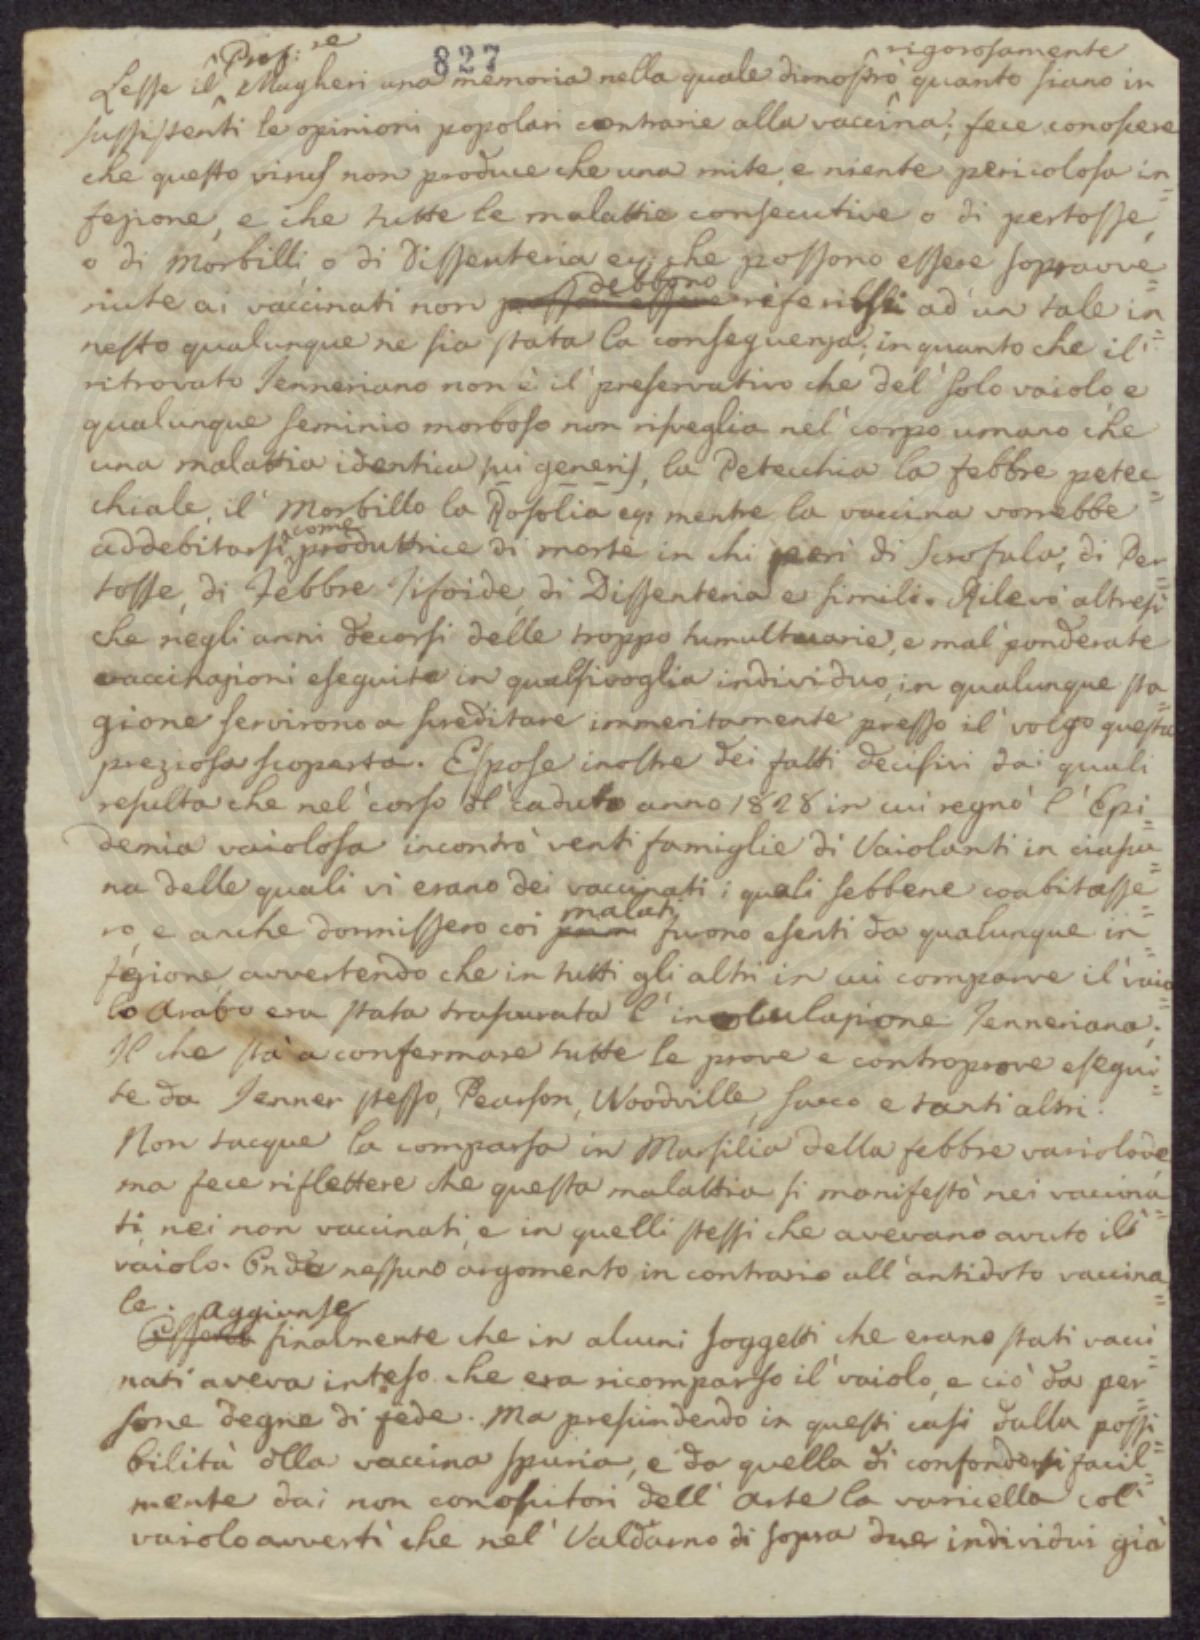 827
Lesse il Prof:re Magheri una memoria nella quale dimostrò rigorosamente quanto siano in
sussistenti le opinioni popolari contrarie alla vaccina; fece conoscere
che questo virus non produce che una mite, e niente pericolosa in=
fezione, e che tutte le malattie consecutive o di pertosse,
o di Morbilli o di Dissenteria ec: che possono essere sopravve=
nute ai vaccinati non debbono riferirsi ad un tale in=
nesto qualunque ne sia stata la conseguenza; in quanto che il
ritrovato Jenneriano non è il preservativo che del solo vaiolo, e
qualunque seminio morboso non risveglia nel corpo umano che
una malattia identica sui generis, la Petecchia la febbre petec=
chiale, il Morbillo la Rosolia ec: mentre la vaccina vorrebbe
addebitarsi come produttrice di morte in chi perì di Scrofula, di Per=
tosse, di Febbre Tifoide, di Dissenteria e simili. Rilevò altresì
che negli anni decorsi delle troppo tumultuarie, e mal ponderate
vaccinazioni eseguite in qualsivoglia individuo, in qualunque sta=
gione servirono a screditare immeritamente presso il volgo questa
preziosa scoperta. Espose inoltre dei fatti decisivi dai quali
resulta che nel corso dl caduto anno 1828 in cui regnò l'Epi=
demia vaiolosa incontrò venti famiglie di Vaiolanti in ciascu=
na delle quali vi erano dei vaccinati i quali sebbene coabitasse=
ro, e anche dormissero coi malati furono esenti da qualunque in=
fezione, avvertendo che in tutti gli altri in cui comparve il vaio=
lo Arabo era stata trascurata l'inoculazione Jenneriana;
Il che sta a confermare tutte le prove e controprove esegui=
te da Jenner stesso, Pearson, Woodville, Sacco e tanti altri.
Non tacque la comparsa in Marsilia della febbre variolode,
ma fece riflettere che questa malattia si manifestò nei vaccina=
ti, nei non vaccinati, e in quelli stessi che avevano avuto il
vaiolo. Onde nessuno argomento in contrario all'antidoto vaccina=
le.
Aggiunse finalmente che in alcuni soggetti che erano stati vacci=
nati aveva inteso che era ricomparso il vaiolo, e ciò da per=
sone degne di fede. Ma prescindendo in questi casi dalla possi=
bilità dlla vaccina spuria, e da quella di confondersi facil=
mente dai non conoscitori dell'Arte la varicella col
vaiolo avvertì che nel Valdarno di sopra due individui già